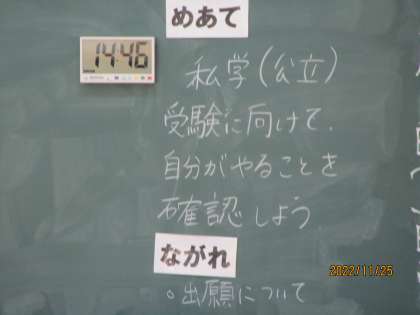 めあて
14:46
私学(公立)
受験に向けて、
自分がやることを
確認しよう
ながれ
○出願について
2022/11/25